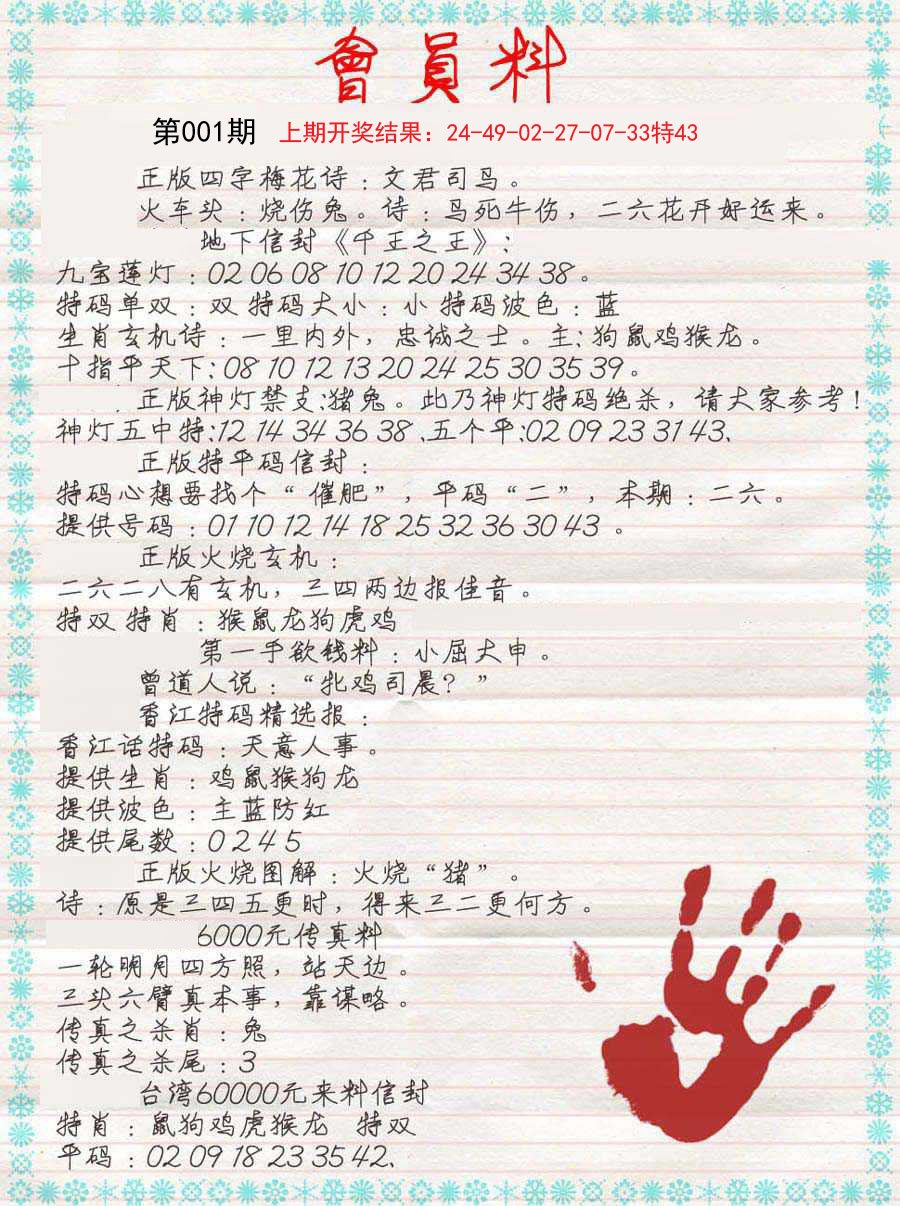 會員料
第001期 上期开奖结果：24-49-02-27-07-33特43
正版四字梅花诗：文君司鸟。
火车头：烧伤兔。诗：鸟死牛伤，二六花开好运来。
地下信封《千王之王》：
九宝莲灯：02 06 08 10 12 20 24 34 38。
特码单双：双 特码大小：小 特码波色：蓝
生肖玄机诗：一里内外，忠诚之士。主：狗鼠鸡猴龙。
十指平天下：08 10 12 13 20 24 25 30 35 39。
正版神灯禁支：猪兔。此乃神灯特码绝杀，请大家参考！
神灯五中特：12 14 34 36 38、五个平：02 09 23 31 43、
正版特平码信封：
特码心想要找个“催肥”，平码“二”，本期：二六。
提供号码：01 10 12 14 18 25 32 36 30 43。
正版火烧玄机：
二六二八有玄机，三四两边报佳音。
特双 特肖：猴鼠龙狗虎鸡
第一手欲钱料：小屈大申。
曾道人说：“牝鸡司晨？”
香江特码精选报：
香江话特码：天意人事。
提供生肖：鸡鼠猴狗龙
提供波色：主蓝防红
提供尾数：0 2 4 5
正版火烧图解：火烧“猪”。
诗：原是三四五更时，得来三二更何方。
6000元传真料
一轮明月四方照，站天边。
三头六臂真本事，靠谋略。
传真之杀肖：兔
传真之杀尾：3
台湾60000元来料信封
特肖：鼠狗鸡虎猴龙 特双
平码：02 09 18 23 35 42、